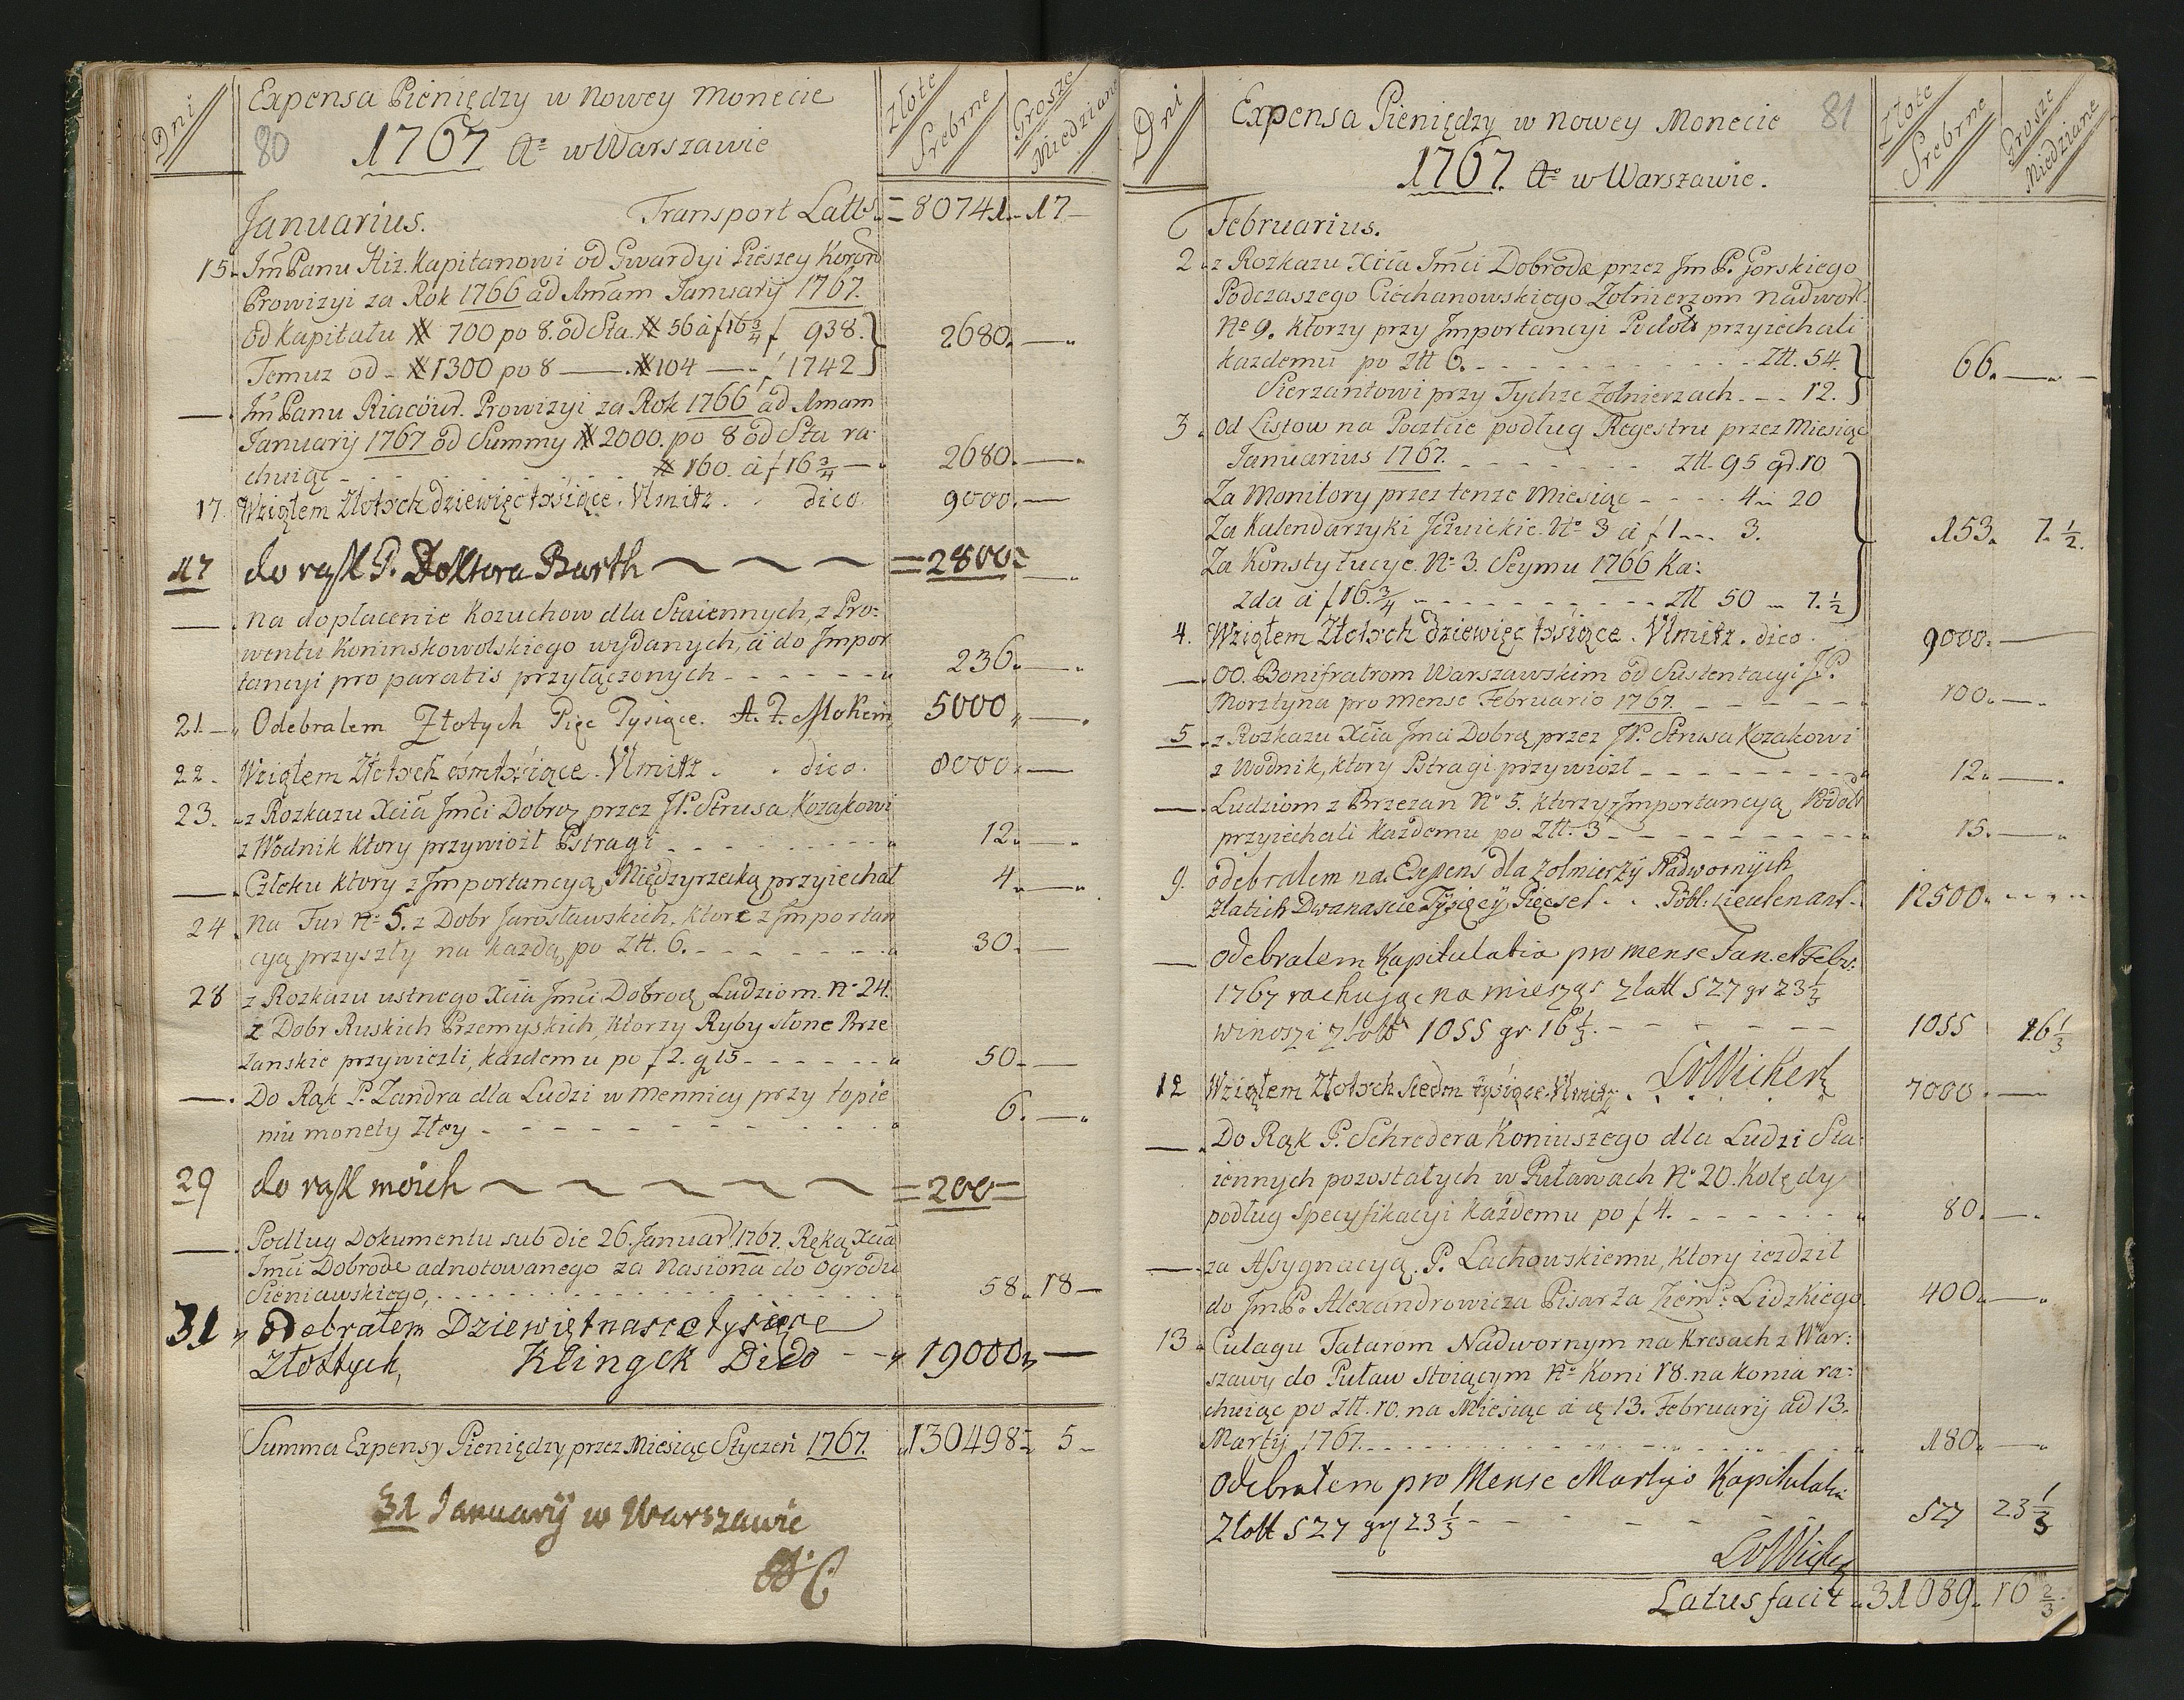 Dni
Expensa Pieniędzy w Nowey Monecie
80 1767 Ao w Warszawie
Złote Srebrne
Grosze Miedziane
Januarius. Transport Latts = 80741 - 17 -
15. Jm Panu Hiz. Kapitanowi od Gwardyi Pieszey Koron
Prowizyi za Rok 1766 ad Amam Januarij 1767.
od Kapitału # 700 po 8. od Sta. # 56 á f 16 3/4 f 938.
Temuz od - # 1300 po 8 — # 104 — f 1742 2680. —
— Jm Panu Riacour. Prowizyi za Rok 1766 ad Amam
Januarij 1767 od Summy # 2000. po 8 od Sta ra-
chuiąc # 160 á f 16 3/4 — 2680. —
17. Wziąłem Złotych dziewięć tysięce. Vlmitz. dico. 9000. —
17 do rąk P. Doktora Barth = 2800 =
— na dopłacenie Kozuchow dla Staiennych, z Pro-
wentu Koninskowolskiego wydanych, á do Impor
tancyi pro paratis przyłączonych - - - 236. —
21. — Odebrałem Złotych Pięc Tysięce. A. F. Mokein 5000 —
22. Wziąłem Złotych ośm tysiące. Vlmitz. dico. 8000. —
23. z Rozkazu Xcia Jmci Dobroz przez JP. Strusa Kozakowi
z Wodnik ktory przywiozł Pstragi - - - 12. —
— Człeku ktory z Importancyą Międzyrzecką przyiechał 4. —
24. Na Fur No 5. z Dobr Jarosławskich, ktore z Importan
cyą przyszły na kazdą po Złł. 6. - - - 30. —
28 z Rozkazu ustnego Xcia Jmci Dobrodz Ludziom No 24.
z Dobr Ruskich Przemyskich, ktorzy Ryby słone Brze
zanskie przywiezli, kazdemu po f 2. g 15 - - - 50. —
— Do Rąk P. Zandra dla Ludzi w Mennicy przy topie
niu monety Złey - - - 6. —
29 do rąk moich = 200 =
— Podług Dokumentu sub die 26. Januar. 1767. Ręką Xcia
Jmci Dobrode adnotowanego za Nasiona do Ogrodu
Sieniawskiego, - - - 58. 18 —
31 Odebrałem Dziewiętnascie tysięce
Złottych, Klingek Dico - - 19000 —
Summa Expensy Pieniędzy przez Miesiąc Styczeń 1767. 130498 - 5 -
31 Januarij w Warszawie
Dni
Expensa Pieniędzy w Nowey Monecie 81
1767. Ao w Warszawie.
Złote Srebrne
Grosze Miedziane
Februarius.
2. z Rozkazu Xcia Jmci Dobrodz przez Jm P. Gorskiego
Podczaszego Ciechanowskiego Zołnierzom nadwor.
No 9. ktorzy przy Importancyi Podols przyiechali
kazdemu po Złł 6. - - - Złł. 54.
Sierzantowi przy Tychze Zołnierzach - - - 12. 66. —
3. od Listow na Poczcie podług Regestru przez Miesiąc
Januarius 1767. - - - Złł. 95 gr. 10
Za Monitory przez tenze Miesiąc - - - 4 - 20
Za Kalendarzyki Jezuickie. No 3 á f 1 - - - 3.
Za Konstytucye. No 3. Seymu 1766 Ka:
zda á f 16. 3/4 - - - Złł 50 - 7. 1/2 153. 7. 1/2.
4. Wziąłem Złotych dziewięć tysiące. Vlmitz. dico. 9000. —
— OO. Bonifratrom Warszawskim od Sustentacyi JP.
Morsztyna pro Mense Februario 1767. - - - 100. —
5. z Rozkazu Xcia Jmci Dobrą, przez JP. Strusa Kozakowi
z Wodnik, ktory Pstragi przywiozł - - - 12. —
— Ludziom z Brzezan No 5. ktorzy z Importancyą Podol
przyiechali kazdemu po Złł. 3 - - - 15. —
9. odebralem na Expens dla zolnierzÿ Nadwornÿch
zlatich Dwanascie Tysięcÿ Pięcset. Pöbl. Lieutenant. 12500.
— Odebralem Kapitulatia pro mense Jan. et Febr:
1767 rachując na miesząs Zlott 527 gr 23 1/3
winoszi zlott 1055 gr 16 1/3. - - - 1055 16 1/3
LvWickert
12 Wziąłem Złotych siedm tysiące. Vlmitz. 7000. —
— Do Rąk P. Schredera Koniuszego dla Ludzi Sta-
iennych pozostałych w Puławach No 20. Kolędy
podług specyfikacyi Kazdemu po f 4. - - - 80. —
— za Assygnacyą. P. Lachowskiemu, ktory iezdził
do Jm P. Alexandrowicza Pisarza Ziem. Lidzkiego. 400. —
13. Culagu Tatarom Nadwornym na Kresach z War:
szawy do Puław stoiącym No Koni 18. na konia ra:
chuiąc po Złł. 10. na Miesiąc á 13. Februarij ad 13.
Martij 1767. - - - 180. —
Odebralem pro Mense Martijo Kapitulatia
Zlott 527 gr 23 1/3 - - - 527 23 1/3
LvWickert
Latus facit 31089. 16 2/3.